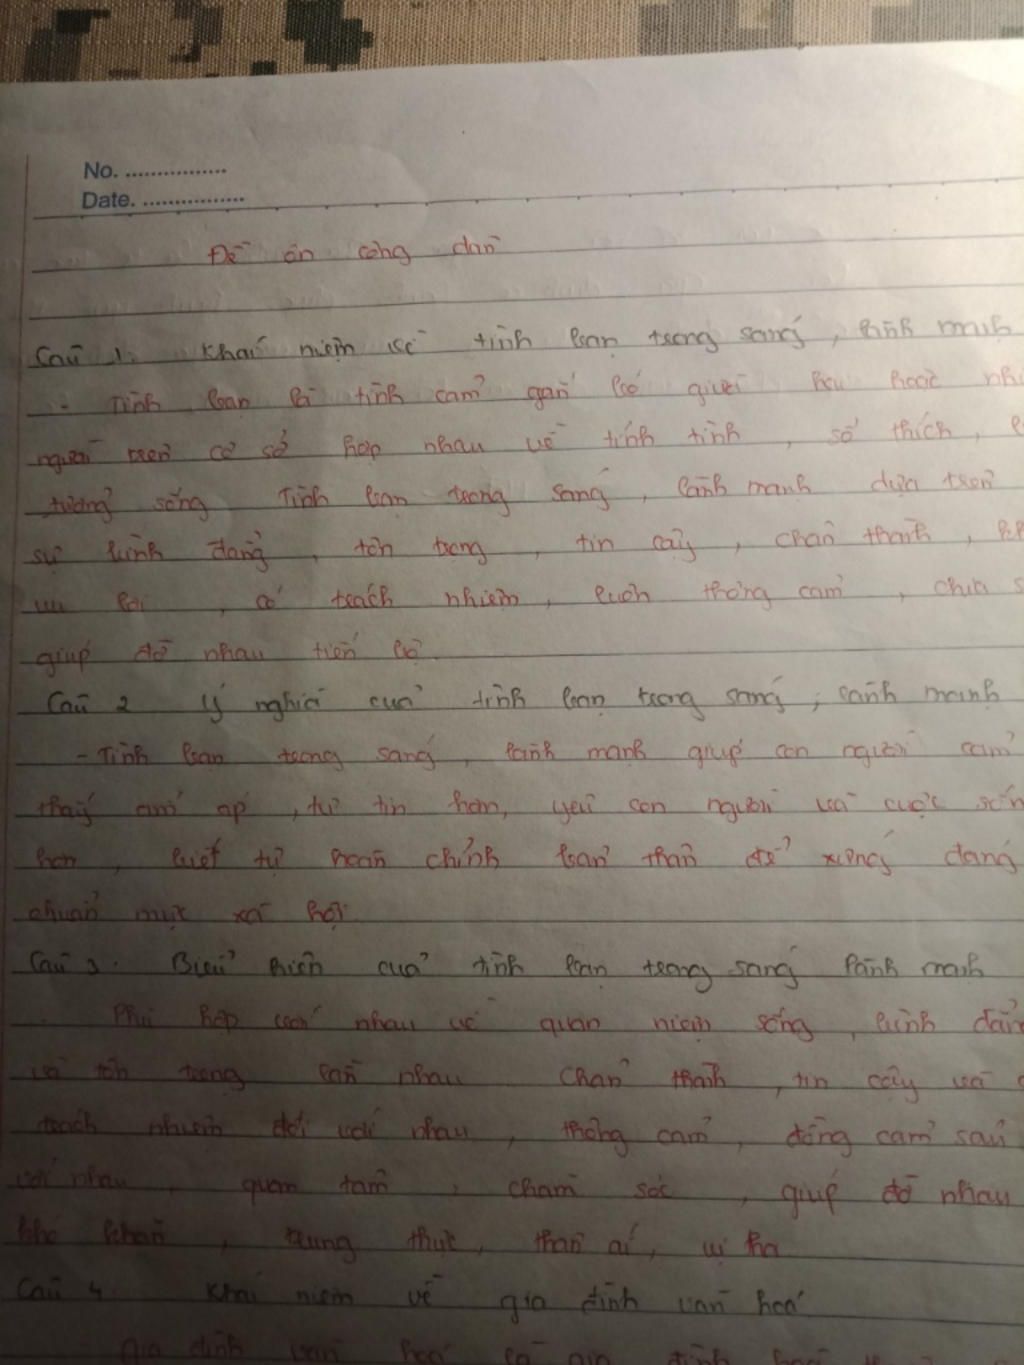 No. ................
Date. ................
Đề ôn công dân
Câu 1. Khái niệm về tình bạn trong sáng, lành mạnh
- Tình bạn là tình cảm gắn bó giữa hai hoặc
người trên cơ sở hợp nhau về tính tình, sở thích,
tưởng sống Tình bạn trong sáng, lành mạnh dựa trên
sự bình đẳng, tôn trọng, tin cậy, chân thành,
vụ lợi, có trách nhiệm, luôn thông cảm, chia
giúp đỡ nhau tiến bộ
Câu 2 Ý nghĩa của tình bạn trong sáng, lành mạnh
- Tình bạn trong sáng, lành mạnh giúp con người cảm
thấy ấm áp, tự tin hơn, yêu con người và cuộc
hơn, biết tự hoàn chỉnh bản thân để xứng đáng
chuẩn mực xã hội
Câu 3. Biểu hiện của tình bạn trong sáng lành mạnh
Phù hợp với nhau về quan niệm sống, bình
và tôn trọng lẫn nhau Chân thành, tin cậy và
trách nhiệm đối với nhau, thông cảm, đồng cảm sâu
với nhau, quan tâm, chăm sóc, giúp đỡ nhau
khó khăn, trung thực, thân ái, vị tha
Câu 4. Khái niệm về gia đình văn hoá
Gia đình văn hoá là gia đình